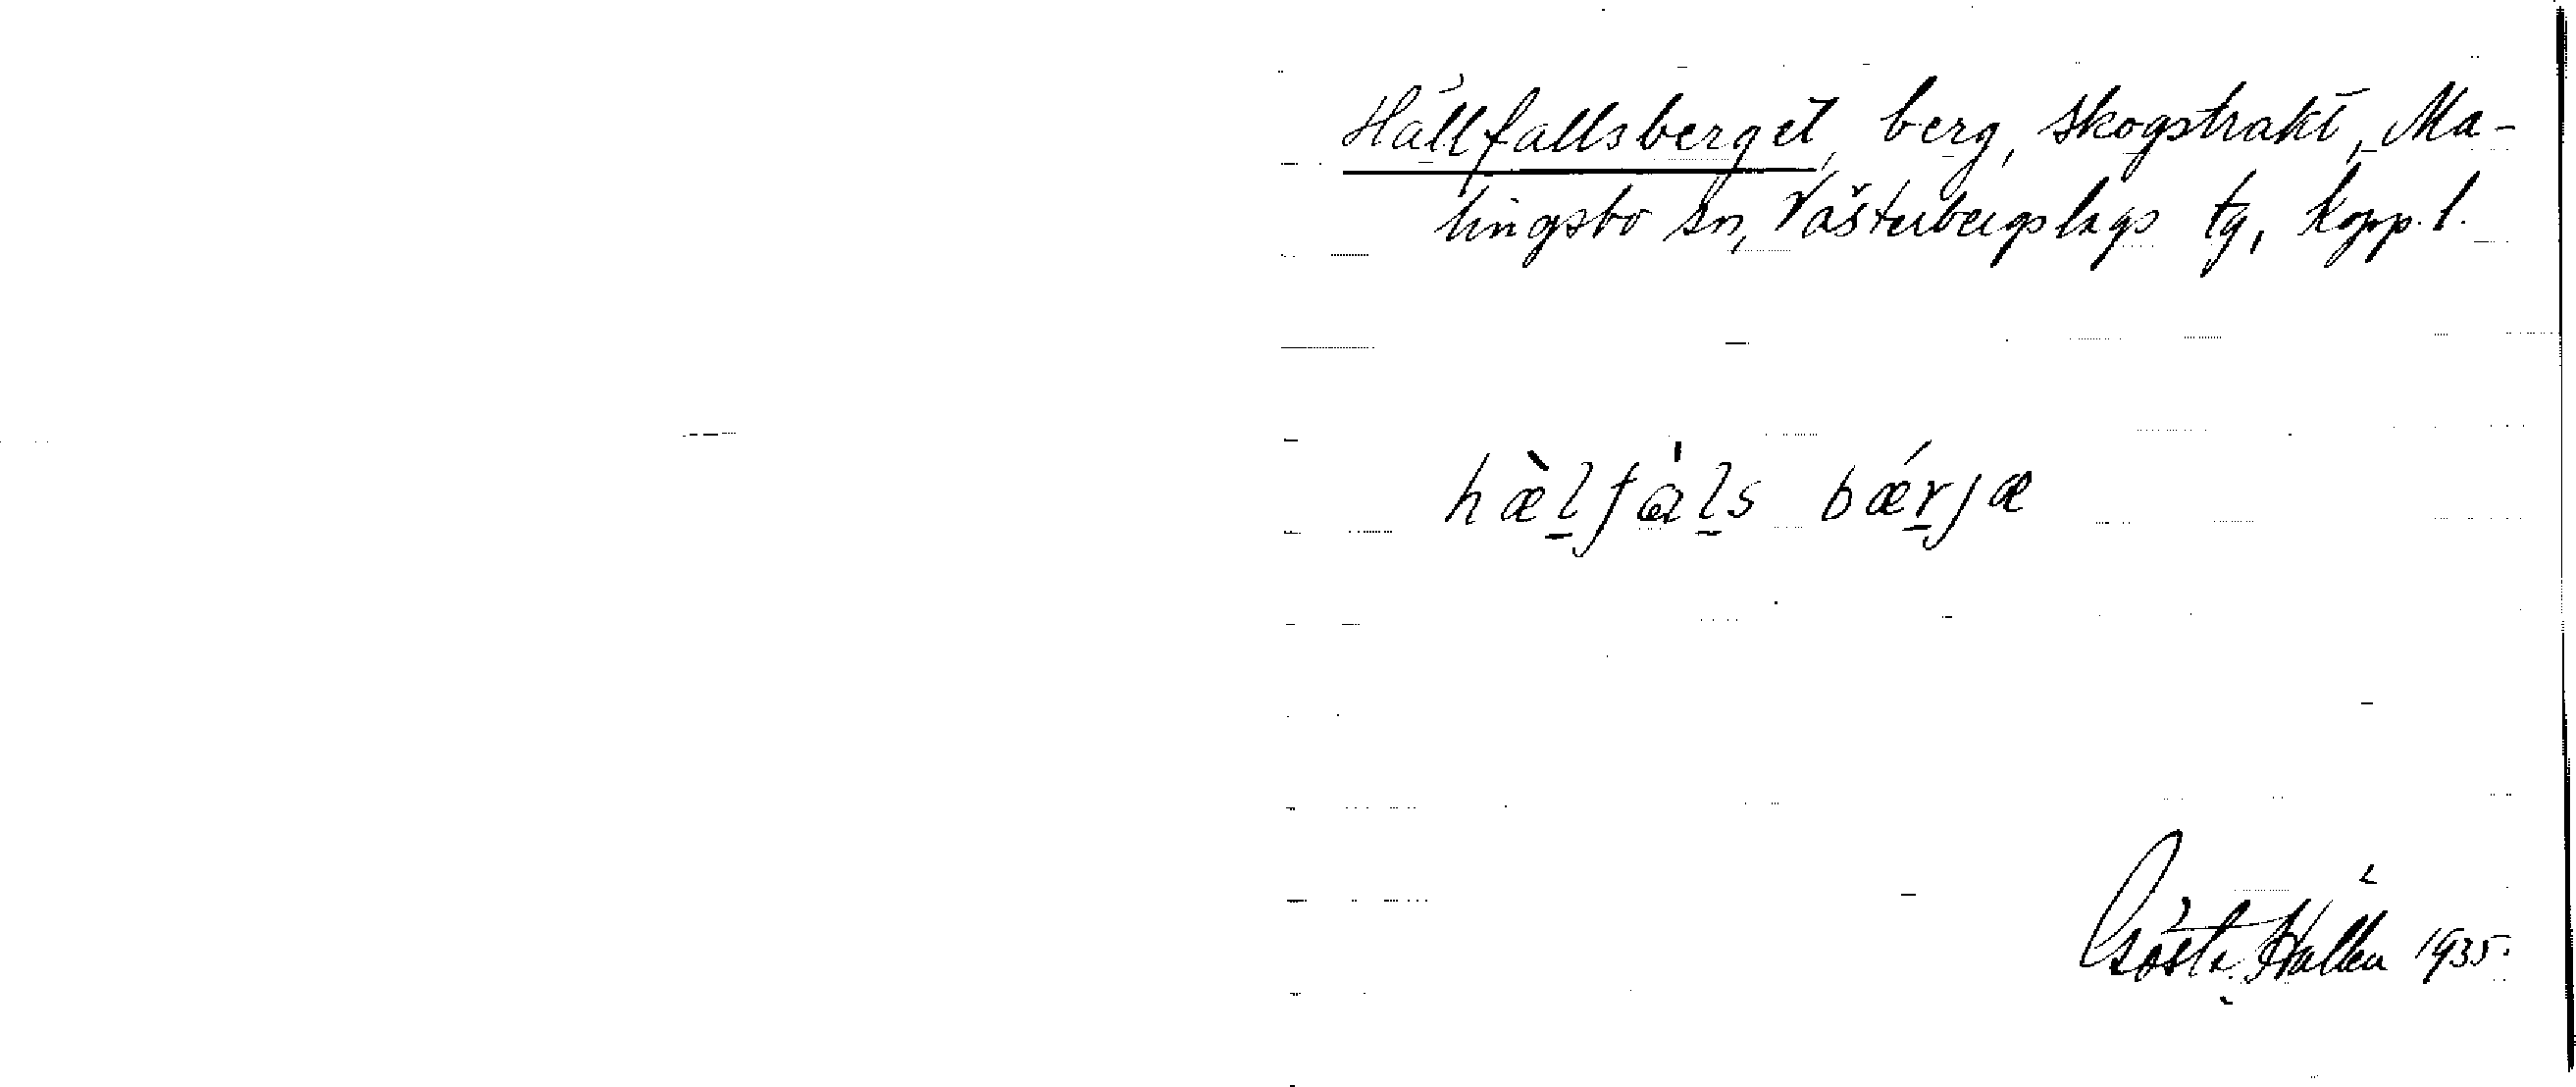 Hällfallsberget, berg, skogstrakt, Ma-
lingsbo sn, Västerbergslags tg, Kopp. l.
hæ̀l̠fɑ̀l̠s bǽr̠jæ
Gösta Hallén 1935.